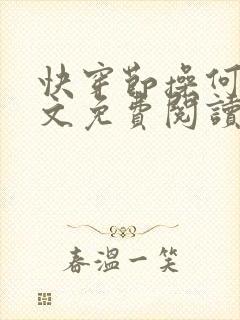 快穿節操何
文免費閱讀
春溫一笑